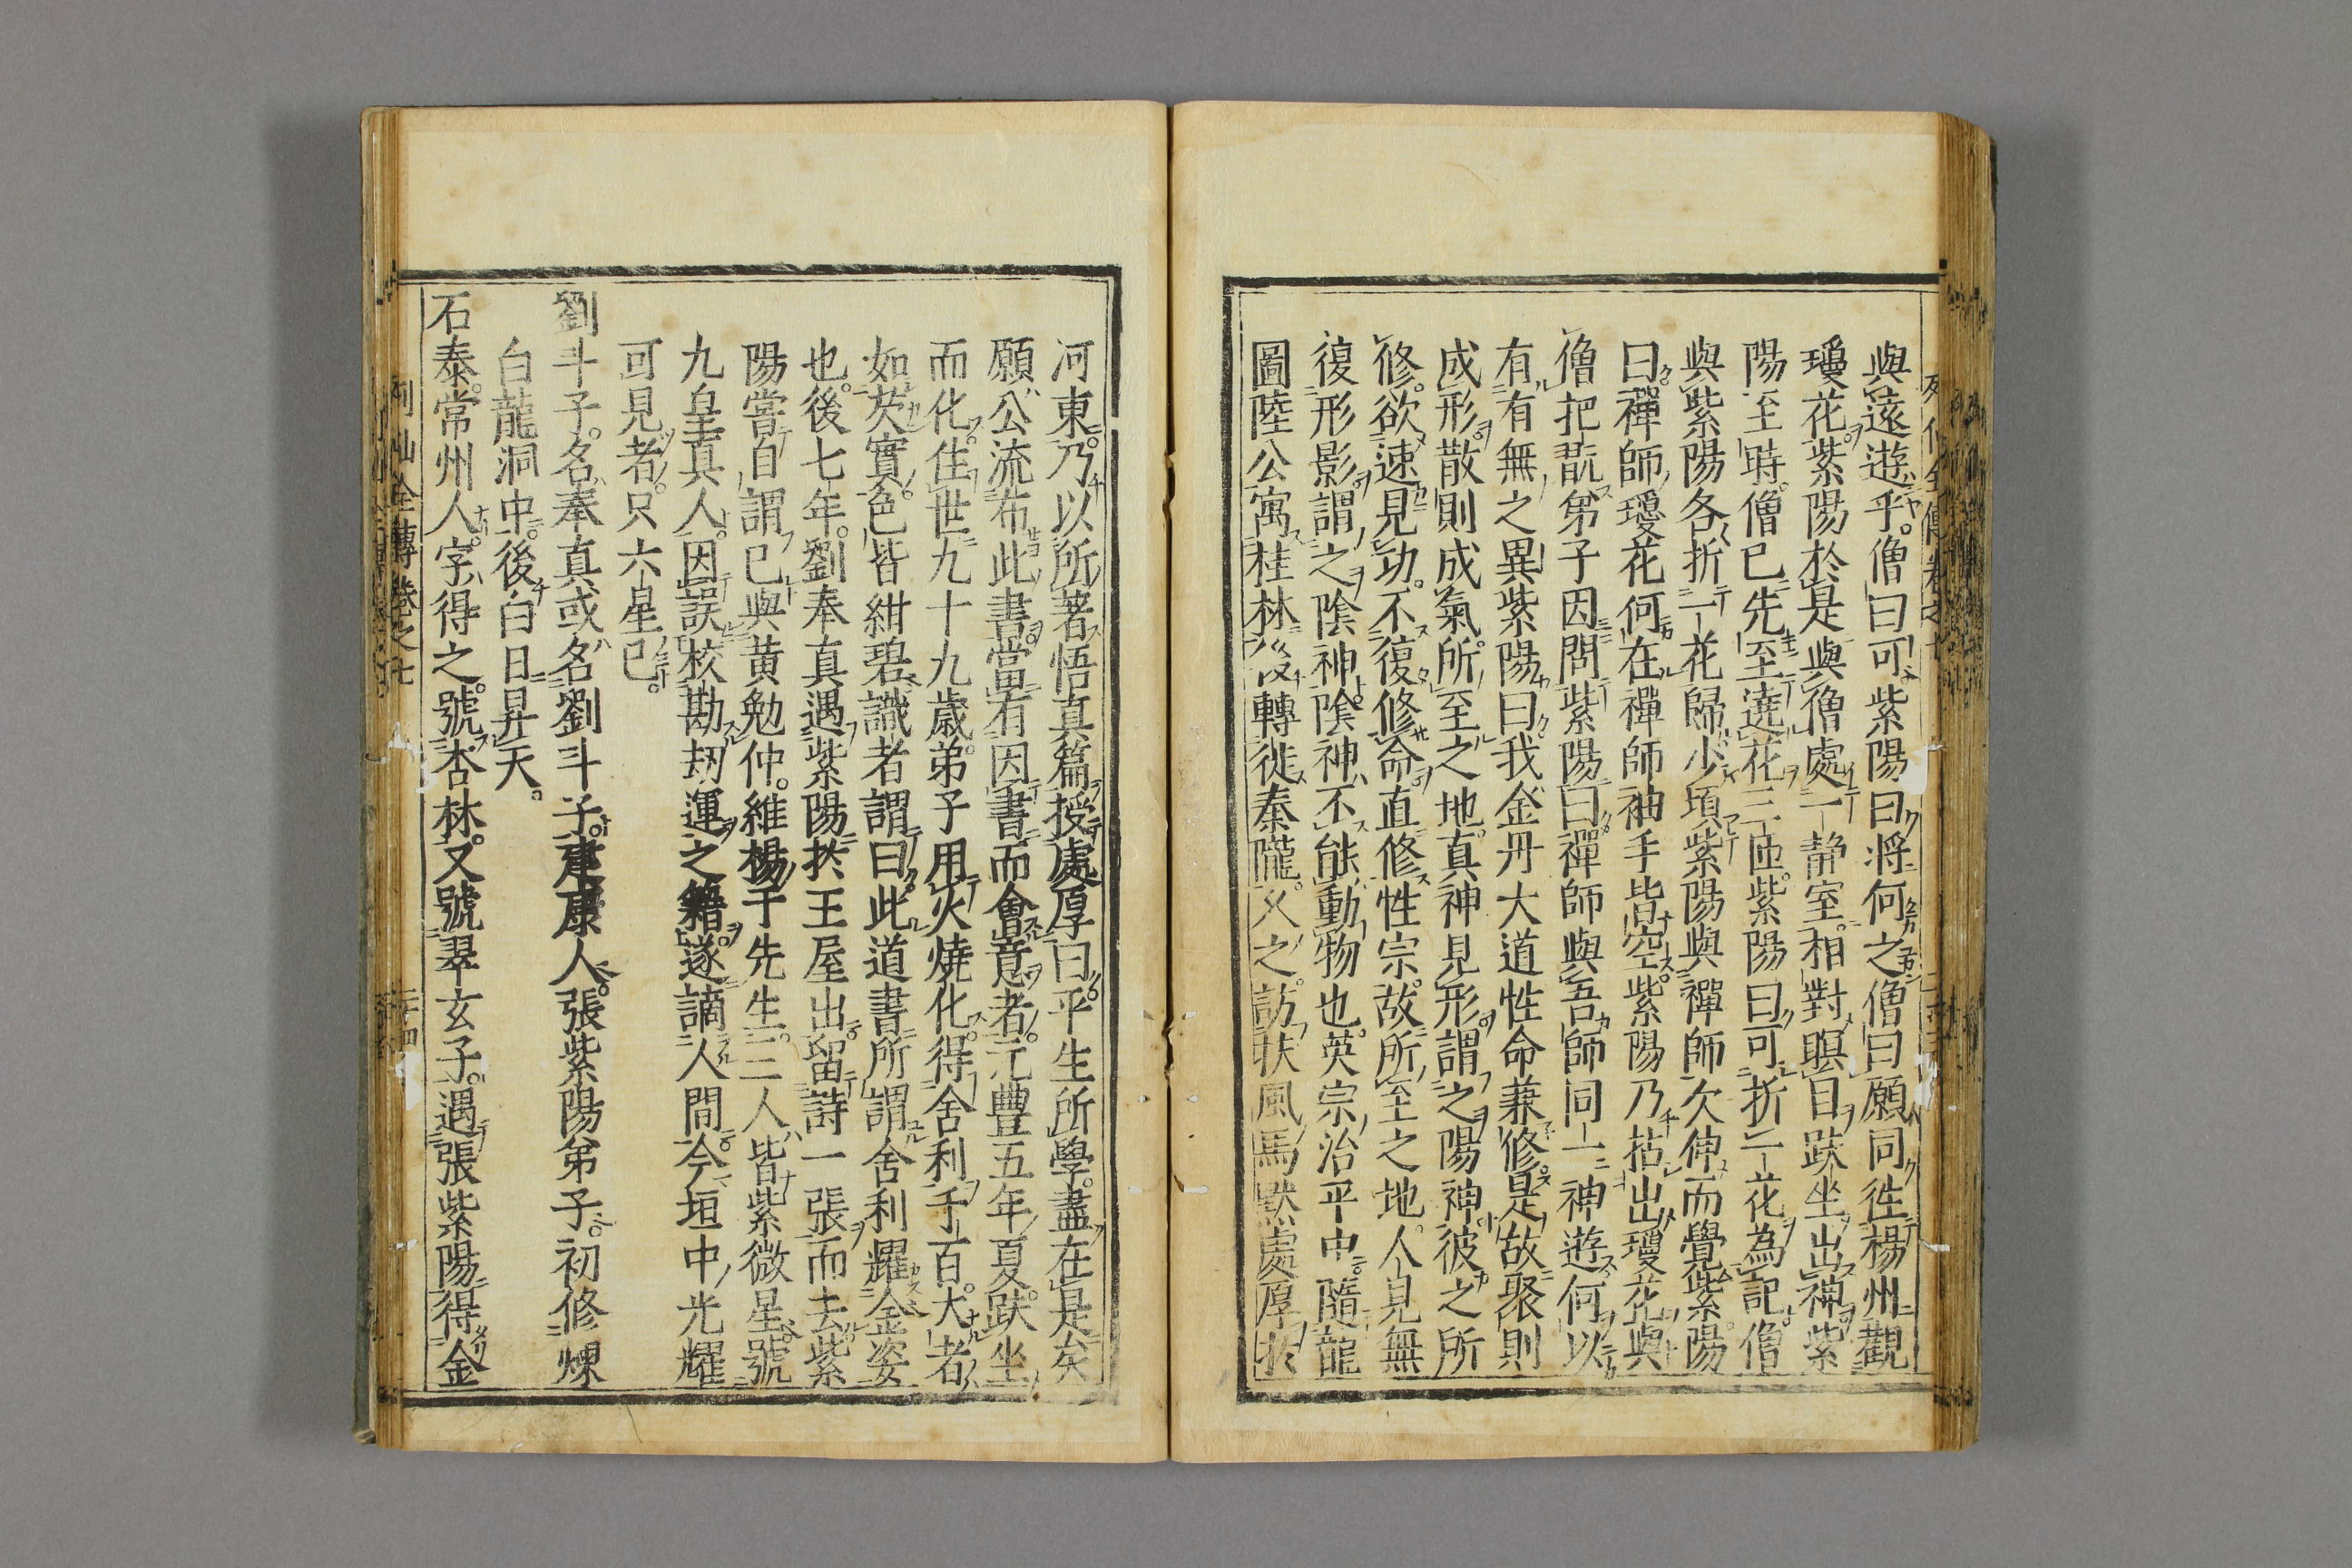 與遠遊乎。僧曰可紫陽曰將何之僧曰願同徃楊州觀
瓊花紫陽於是與僧處一静室。相對瞑目趺坐出神紫
陽至時僧已先至遶花三匝紫陽曰可折一花為記僧
與紫陽各折一花歸少頃紫陽與禪師欠伸而覺紫陽
曰禪師瓊花何在禪師袖手皆空紫陽乃拈出瓊花與
僧把翫弟子因問紫陽曰禪師與吾師同一神遊何以
有有無之異紫陽曰我金丹大道性命兼修是故聚則
成形散則成氣所至之地真神見形謂之陽神彼之所
修欲速見功不復修命直修性宗故所至之地人見無
復形影謂之陰神陰神不能動物也英宗治平中隨龍
圖陸公寓桂林後轉徙秦隴久之訪扶風馬默處厚於
河東乃以所著悟真篇授處厚曰平生所學盡在是矣
願公流布此書當有因書而會意者元豐五年夏趺坐
而化住世九十九歲弟子用火燒化得舍利千百大者
如芡實色皆紺碧識者謂曰此道書所謂舍利耀金姿
也後七年劉奉真遇紫陽於王屋山留詩一張而去紫
陽嘗自謂已與黄勉仲維楊于先生三人皆紫微星號
九皇真人因誤校勘刼運之籍遂謫人間今垣中光耀
可見者只六星已
劉斗子名奉真或名劉斗子建康人張紫陽弟子初修煉
白龍洞中後白日昇天
石泰常州人字得之號杏林又號翠玄子遇張紫陽得金
列仙全傳卷之七
二十四